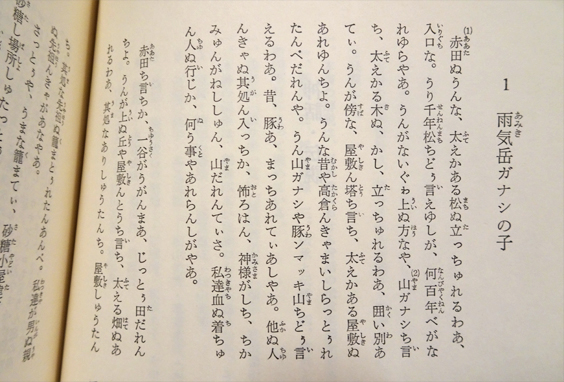 1 雨気岳ガナシの子
(1)赤田ぬうんな、太えかある松ぬ立っちゅれるわあ、
入口な。うり千年松ちどぅ言えゆしが、何百年べがな
れゆらやあ。うんがないぐゎ上ぬ方なや、(2)山ガナシち言
ち、太えかる木ぬ、かし、立っちゅれるわあ、囲い別あ
てぃ。うんが傍な、屋敷ん塔ち言ち、太えかある屋敷ぬ
あれゆんちよ。うんな昔や高倉んきゃまいしらっとぅれ
たんべだれんや。うん山ガナシや豚ンマッキ山ちどぅ言
えるわあ。昔、豚あ、まっちあれてぃあしやあ。他ぬ人
んきゃぬ其処ん入っちか、怖ろはん、神様がしち、ちか
みゅんがねししゅん、山だれんてぃさ。私達血ぬ着ちゅ
ん人ぬ行じか、何う事やあれらんしがやあ。
赤田ち言ちか、谷がうがんまあ、じっとぅ田だれん
ちよ。うんが上ぬ丘や屋敷んとうち言ち、太える畑ぬあ
れるわあ、其処なありしゅたんち。屋敷しゅうたん